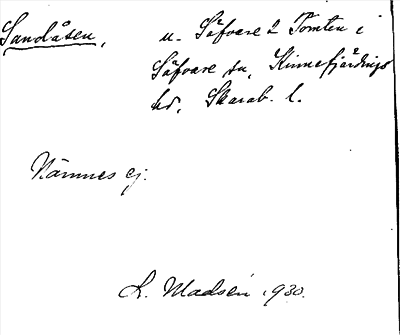 Sandåsen,
u. Säfvare 2 Tomten i
Säfvare sn, Kinnefjärdings
hd, Skarab. l.
Nämnes ej.
L. Madsén 1930.